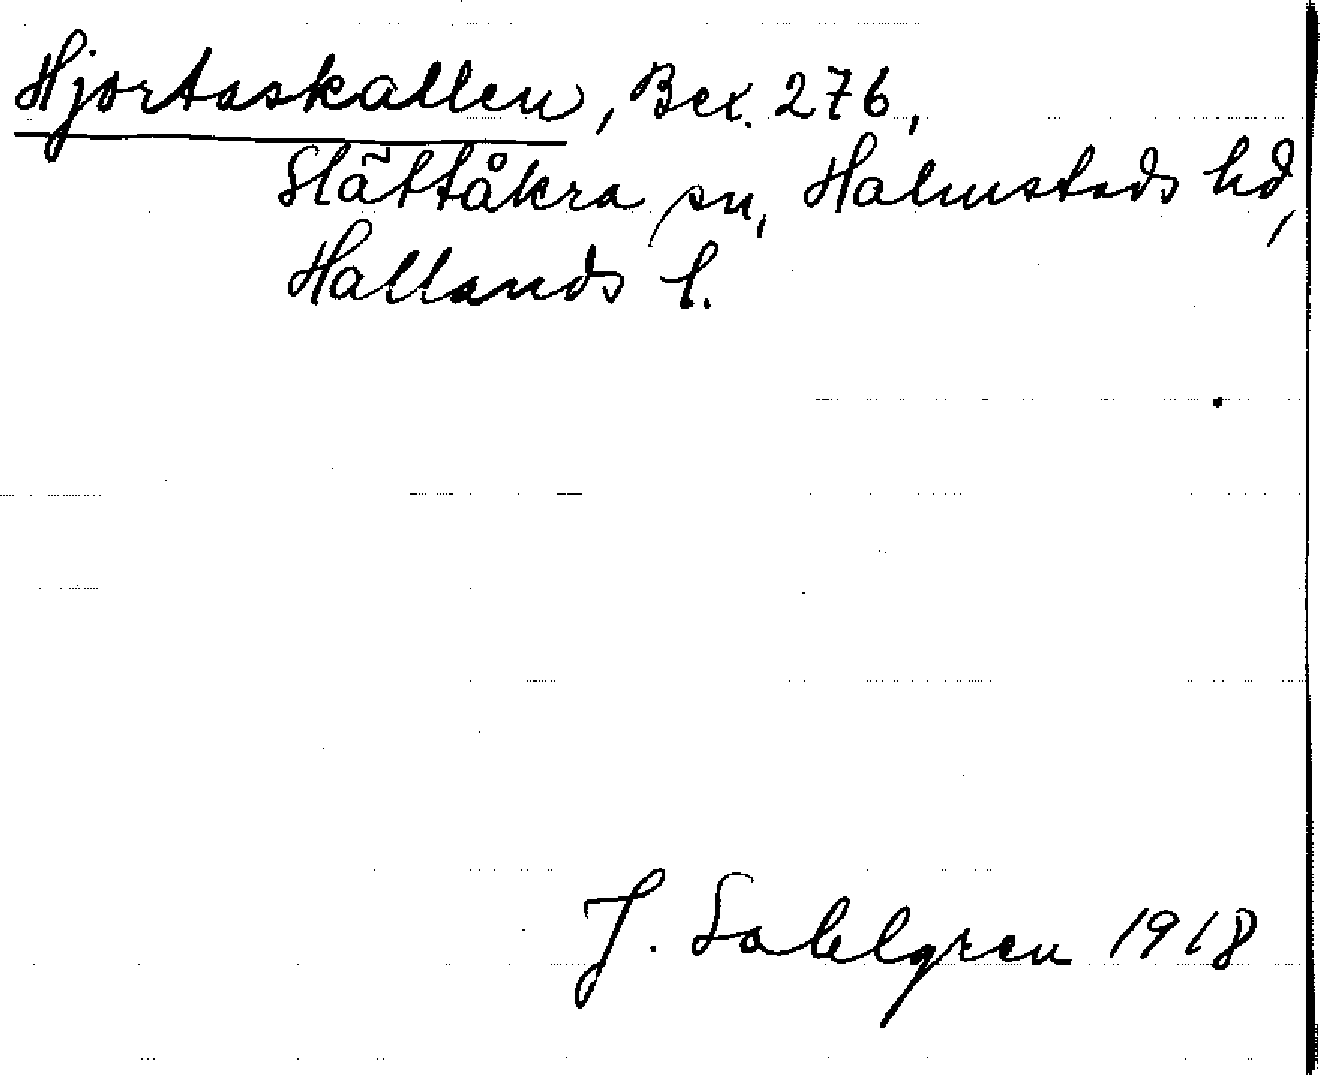 Hjortaskallen, Bex. 276,
Slättåkra sn, Halmstads hd,
Hallands l.
J. Sahlgren 1918